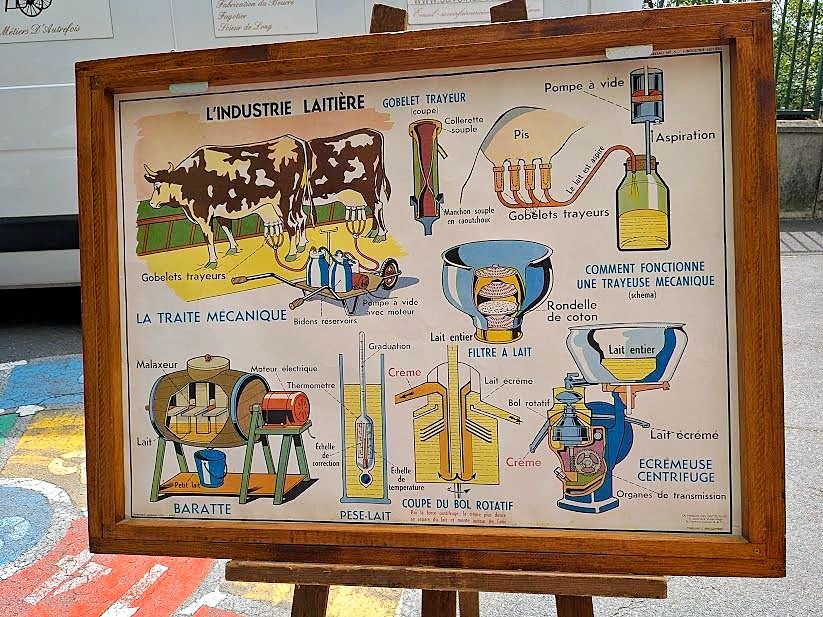 Métiers D'Autrefois
Fabrication du Beurre
Fagotier
Scieur de Long
L'INDUSTRIE LAITIÈRE
GOBELET TRAYEUR
(coupe)
Collerette
souple
Manchon souple
en caoutchouc
Pis
Le lait est aspiré
Gobelets trayeurs
Pompe à vide
Aspiration
COMMENT FONCTIONNE
UNE TRAYEUSE MÉCANIQUE
(schéma)
Gobelets trayeurs
LA TRAITE MÉCANIQUE
Bidons réservoirs
Pompe à vide
avec moteur
Rondelle
de coton
FILTRE A LAIT
Malaxeur
Moteur électrique
Lait
Petit lait
BARATTE
Graduation
Thermomètre
Échelle
de
correction
Échelle
de
température
PESE-LAIT
Lait entier
Crème
Lait écrémé
COUPE DU BOL ROTATIF
Par la force centrifuge, la crème plus dense
Lait entier
Bol rotatif
Lait écrémé
Crème
ÉCRÉMEUSE
CENTRIFUGE
Organes de transmission